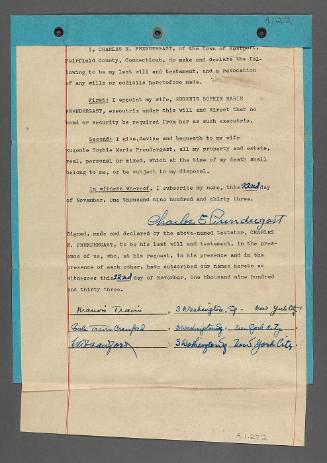 A1.272
I, CHARLES E. PRENDERGAST, of the Town of Westport,
Fairfield County, Connecticut, do make and declare the fol-
lowing to be my last will and testament, and a revocation
of any wills or codicils heretofore made.
First: I appoint my wife, EUGENIE SOPHIE MARIE
PRENDERGAST, executrix under this will and direct that no
bond or security be required from her as such executrix.
Second: I give, devise and bequeath to my wife
Eugenie Sophie Marie Prendergast, all my property and estate,
real, personal or mixed, which at the time of my death shall
belong to me, or be subject to my disposal.
In witness whereof, I subscribe my name, this 22nd day
of November, one thousand nine hundred and thirty three.
Charles E Prendergast
Signed, made and declared by the above-named testator, CHARLES
E. PRENDERGAST, to be his last will and testament, in the pres-
ence of us, who, at his request, in his presence and in the
presence of each other, have subscribed our names hereto as
witnesses this 22nd day of November, one thousand nine hundred
and thirty three.
Travis 3 Washington Sq. New York City
Travis Crawford 3 Washington Sq New York City
3 Washington Sq New York City.
A1.272